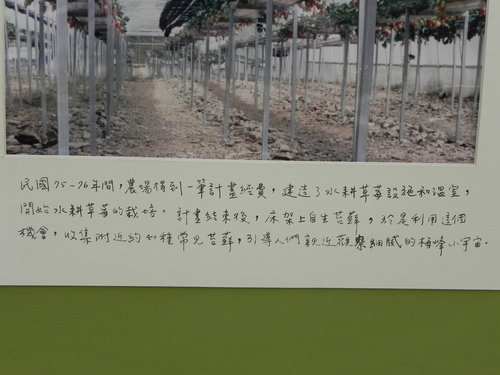 民國75-76年間，農場得到一筆計畫經費，建造了水耕草莓設施和溫室，
開始水耕草莓的栽培。計畫結束後，床架上自生苔蘚，於是利用這個
機會，收集附近約40種常見苔蘚，引導人們親近觀察細膩的梅峰小宇宙。